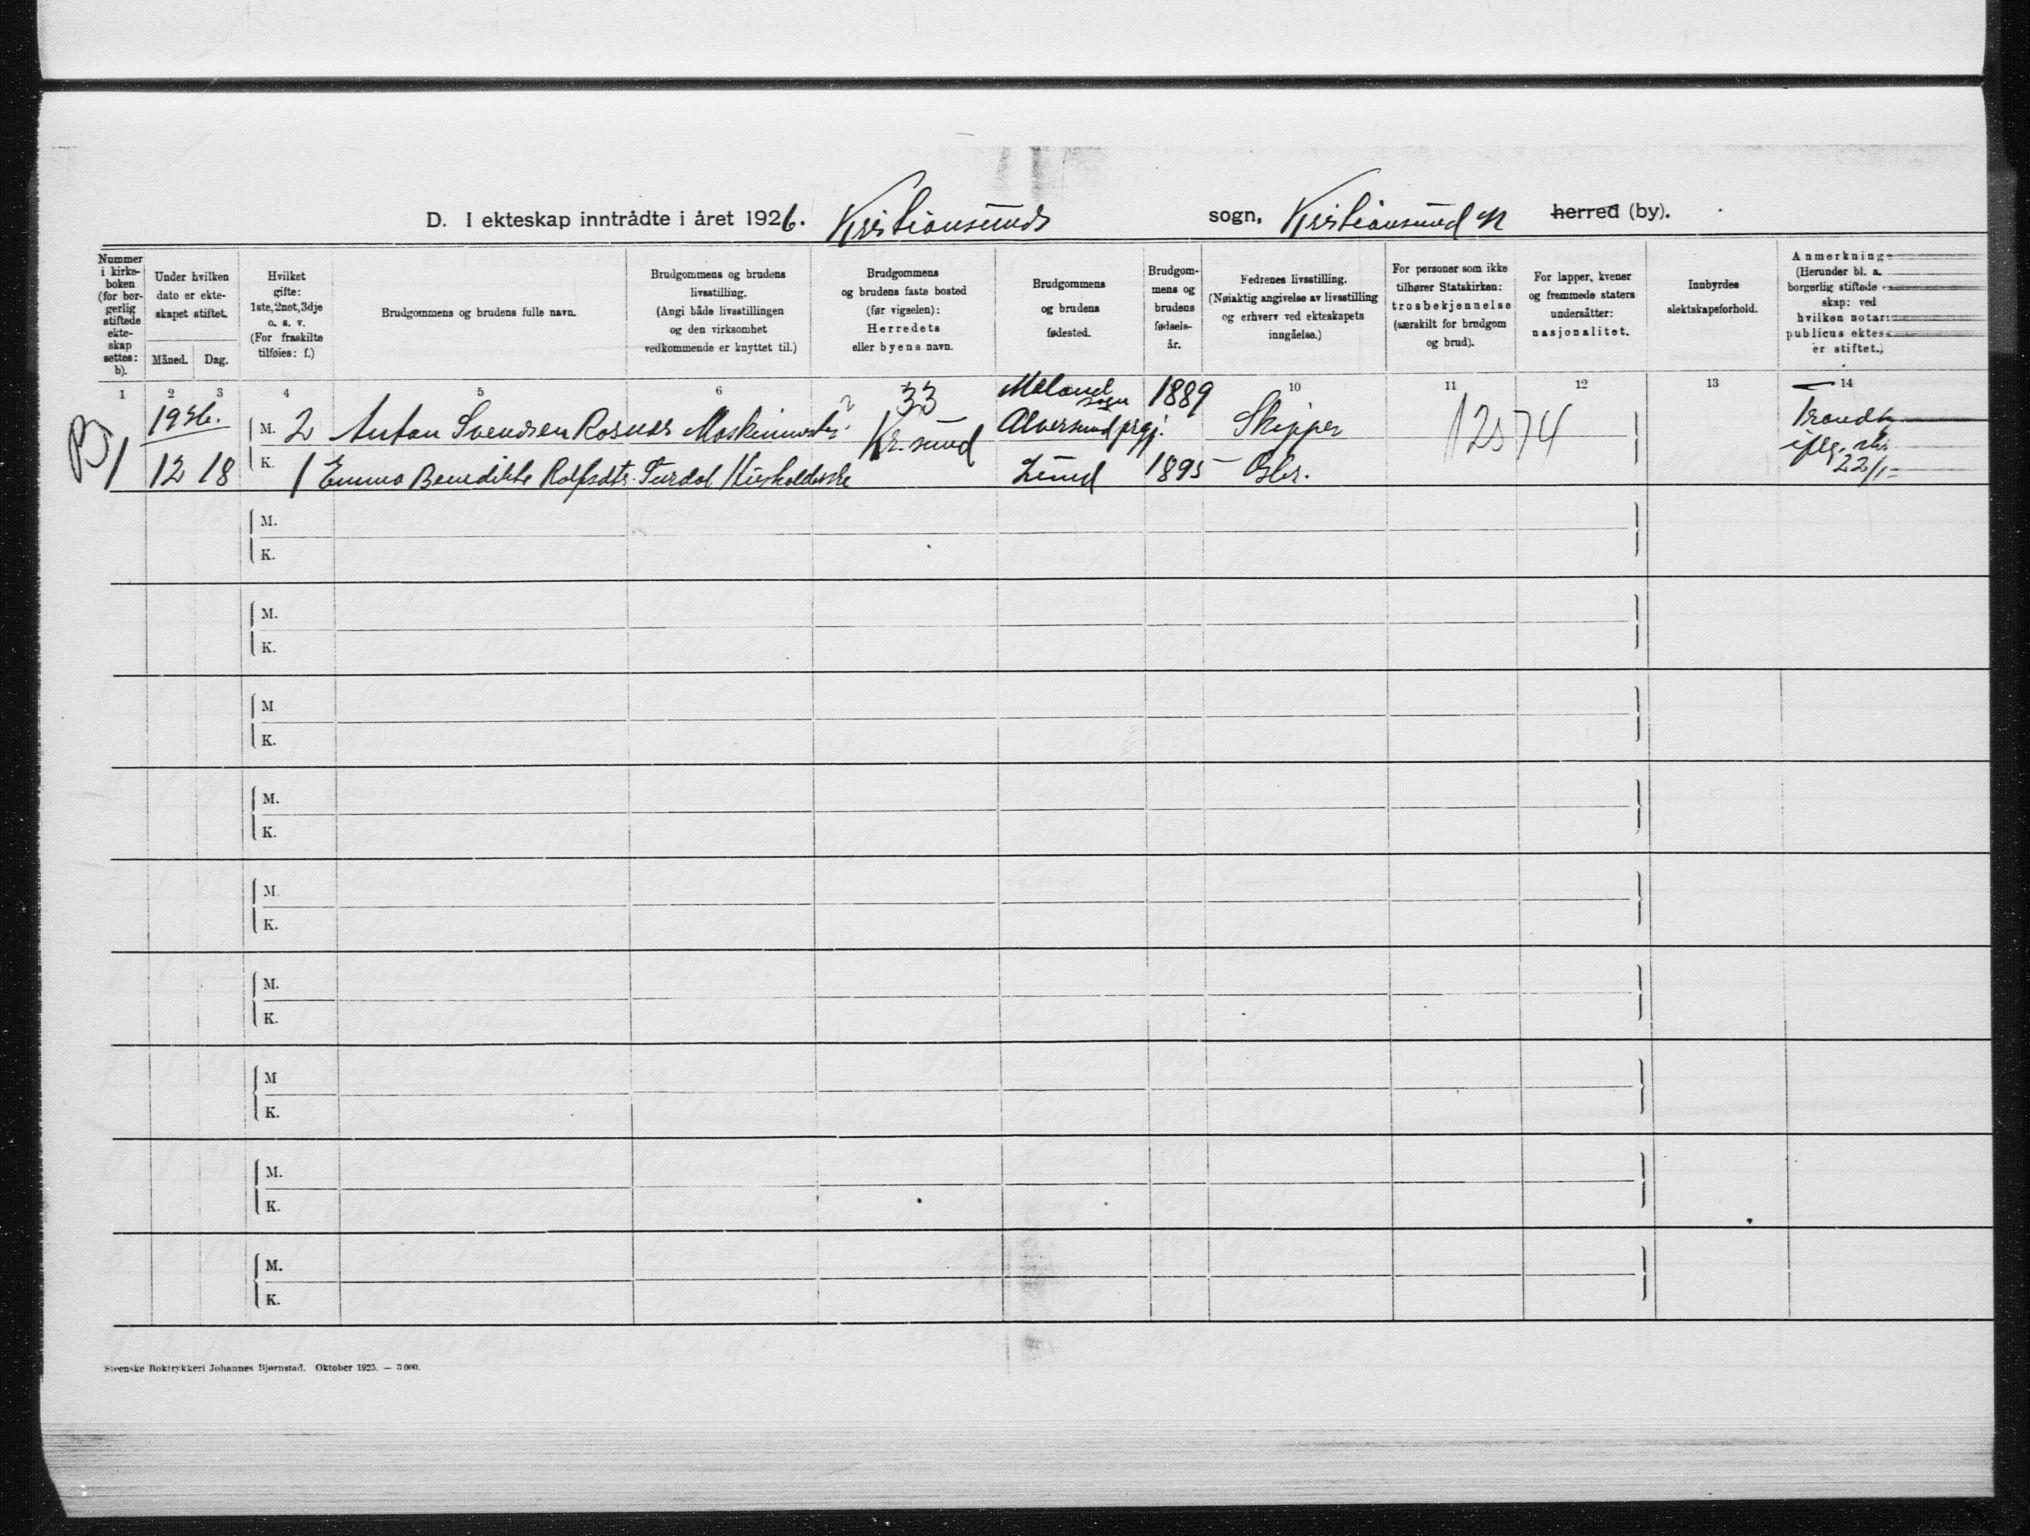 D. I ekteskap inntrådte i året 1926. Kristiansunds sogn, Kristiansund N herred (by).
Nummer
i kirke-
boken
(for bor-
gerlig
stiftede
ekte-
skap
settes:
b).
Under hvilken
dato er ekte-
skapet stiftet.
Måned. Dag.
Hvilket
gifte:
1ste,2net,3dje
o. s. v.
(For fraskilte
tilføies: f.)
Brudgommens og brudens fulle navn.
Brudgommens og brudens
livsstilling.
(Angi både livsstillingen
og den virksomhet
vedkommende er knyttet til.)
Brudgommens
og brudens faste bosted
(før vigselen):
Herredets
eller byens navn.
Brudgommens
og brudens
fødested.
Brudgom-
mens og
brudens
fødsels-
år.
Fedrenes livsstilling.
(Nøiaktig angivelse av livsstilling
og erhverv ved ekteskapets
inngåelse.)
For personer som ikke
tilhører Statskirken:
trosbekjennelse
(særskilt for brudgom
og brud).
For lapper, kvener
og fremmede staters
undersåtter:
nasjonalitet.
Innbyrdes
slektskapsforhold.
Anmerkning
(Herunder bl. a.
borgerlig stiftede
skap: ved
hvilken notar
publicus ektes
er stiftet.)
1 2 3 4 5 6 7 8 9 10 11 12 13 14
B
1
1926.
12 18
M. 2 Anton Svendsen Rosnes Maskinmstr. 33 Kr.sund Meland sogn Alversund prgj. 1889 Skipper 12574
K. 1 Emma Benedikte Rolfsdtr. Turdal Husholderske Lund 1895 Gbr.
Trondh
iflg. skr.
22/1-
M.
K.
M.
K.
M
K.
M.
K.
M.
K.
M.
K.
M
K.
M.
K.
M.
K.
Steenske Boktrykkeri Johannes Bjørnstad. Oktober 1925. — 3000.